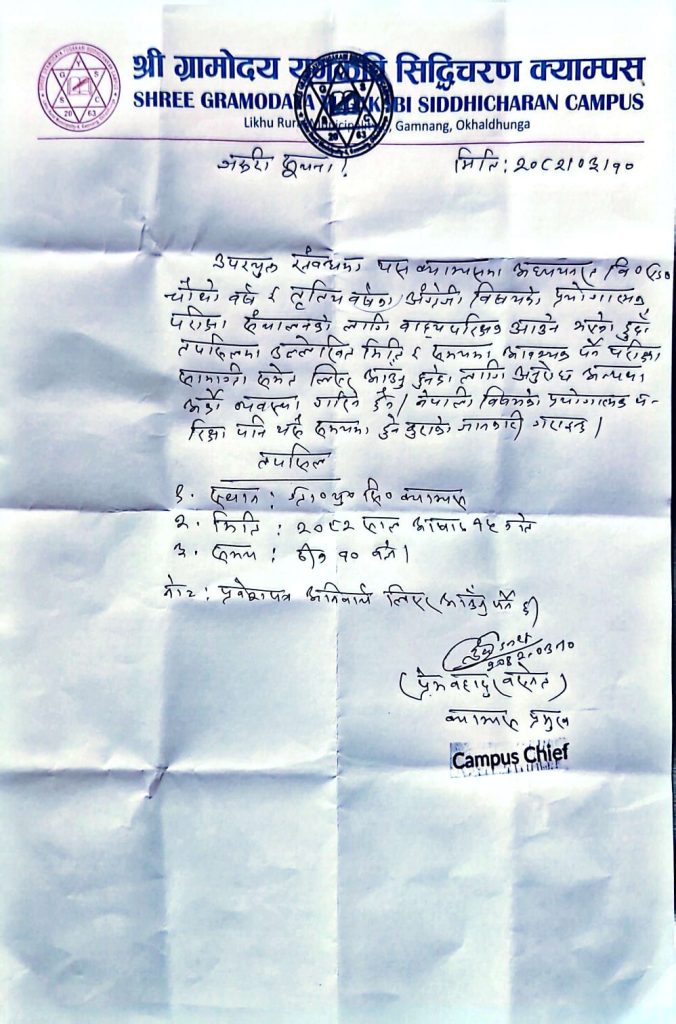 श्री ग्रामोदय युगकवि सिद्धिचरण क्याम्पस
SHREE GRAMODAYA KABI SIDDHICHARAN CAMPUS
Likhu Rural Municipality, Gamnang, Okhaldhunga
जरुरी सूचना!
मिति: २०८२/०३/१०
उपरयुक्त सम्वन्धमा यस क्याम्पसमा अध्ययनरत वि०एड०
चौथो वर्ष र तृतिय वर्षका अंग्रेजी विषयको प्रयोगात्मक
परिक्षा संचालनको लागि वाह्यपरिक्षक आउने भएका हुदाँ
तपसिलमा उल्लेखित मिति र समयमा आवश्यक पर्ने परिक्षा
सामाग्री समेत लिएर आउनु हुनका लागि अनुरोध अन्यथा
अर्को व्यवस्था गरिने छैन। नेपाली विषयको प्रयोगात्मक प-
रिक्षा पनि यसै समयमा हुने कुराको जानकारी गराइन्छ।
तपसिल
१. स्थान: ग्रा०यु०सि० क्याम्पस
२. मिति: २०८२ साल अषाढ १५ गते
३. समय: ठीक १० वजे।
नोट: प्रवेशपत्र अनिवार्य लिएर आउँनु पर्ने छ।
२०८२.०३।१०
(प्रेम वहादुर वस्नेत)
क्याम्पस प्रमुख
Campus Chief